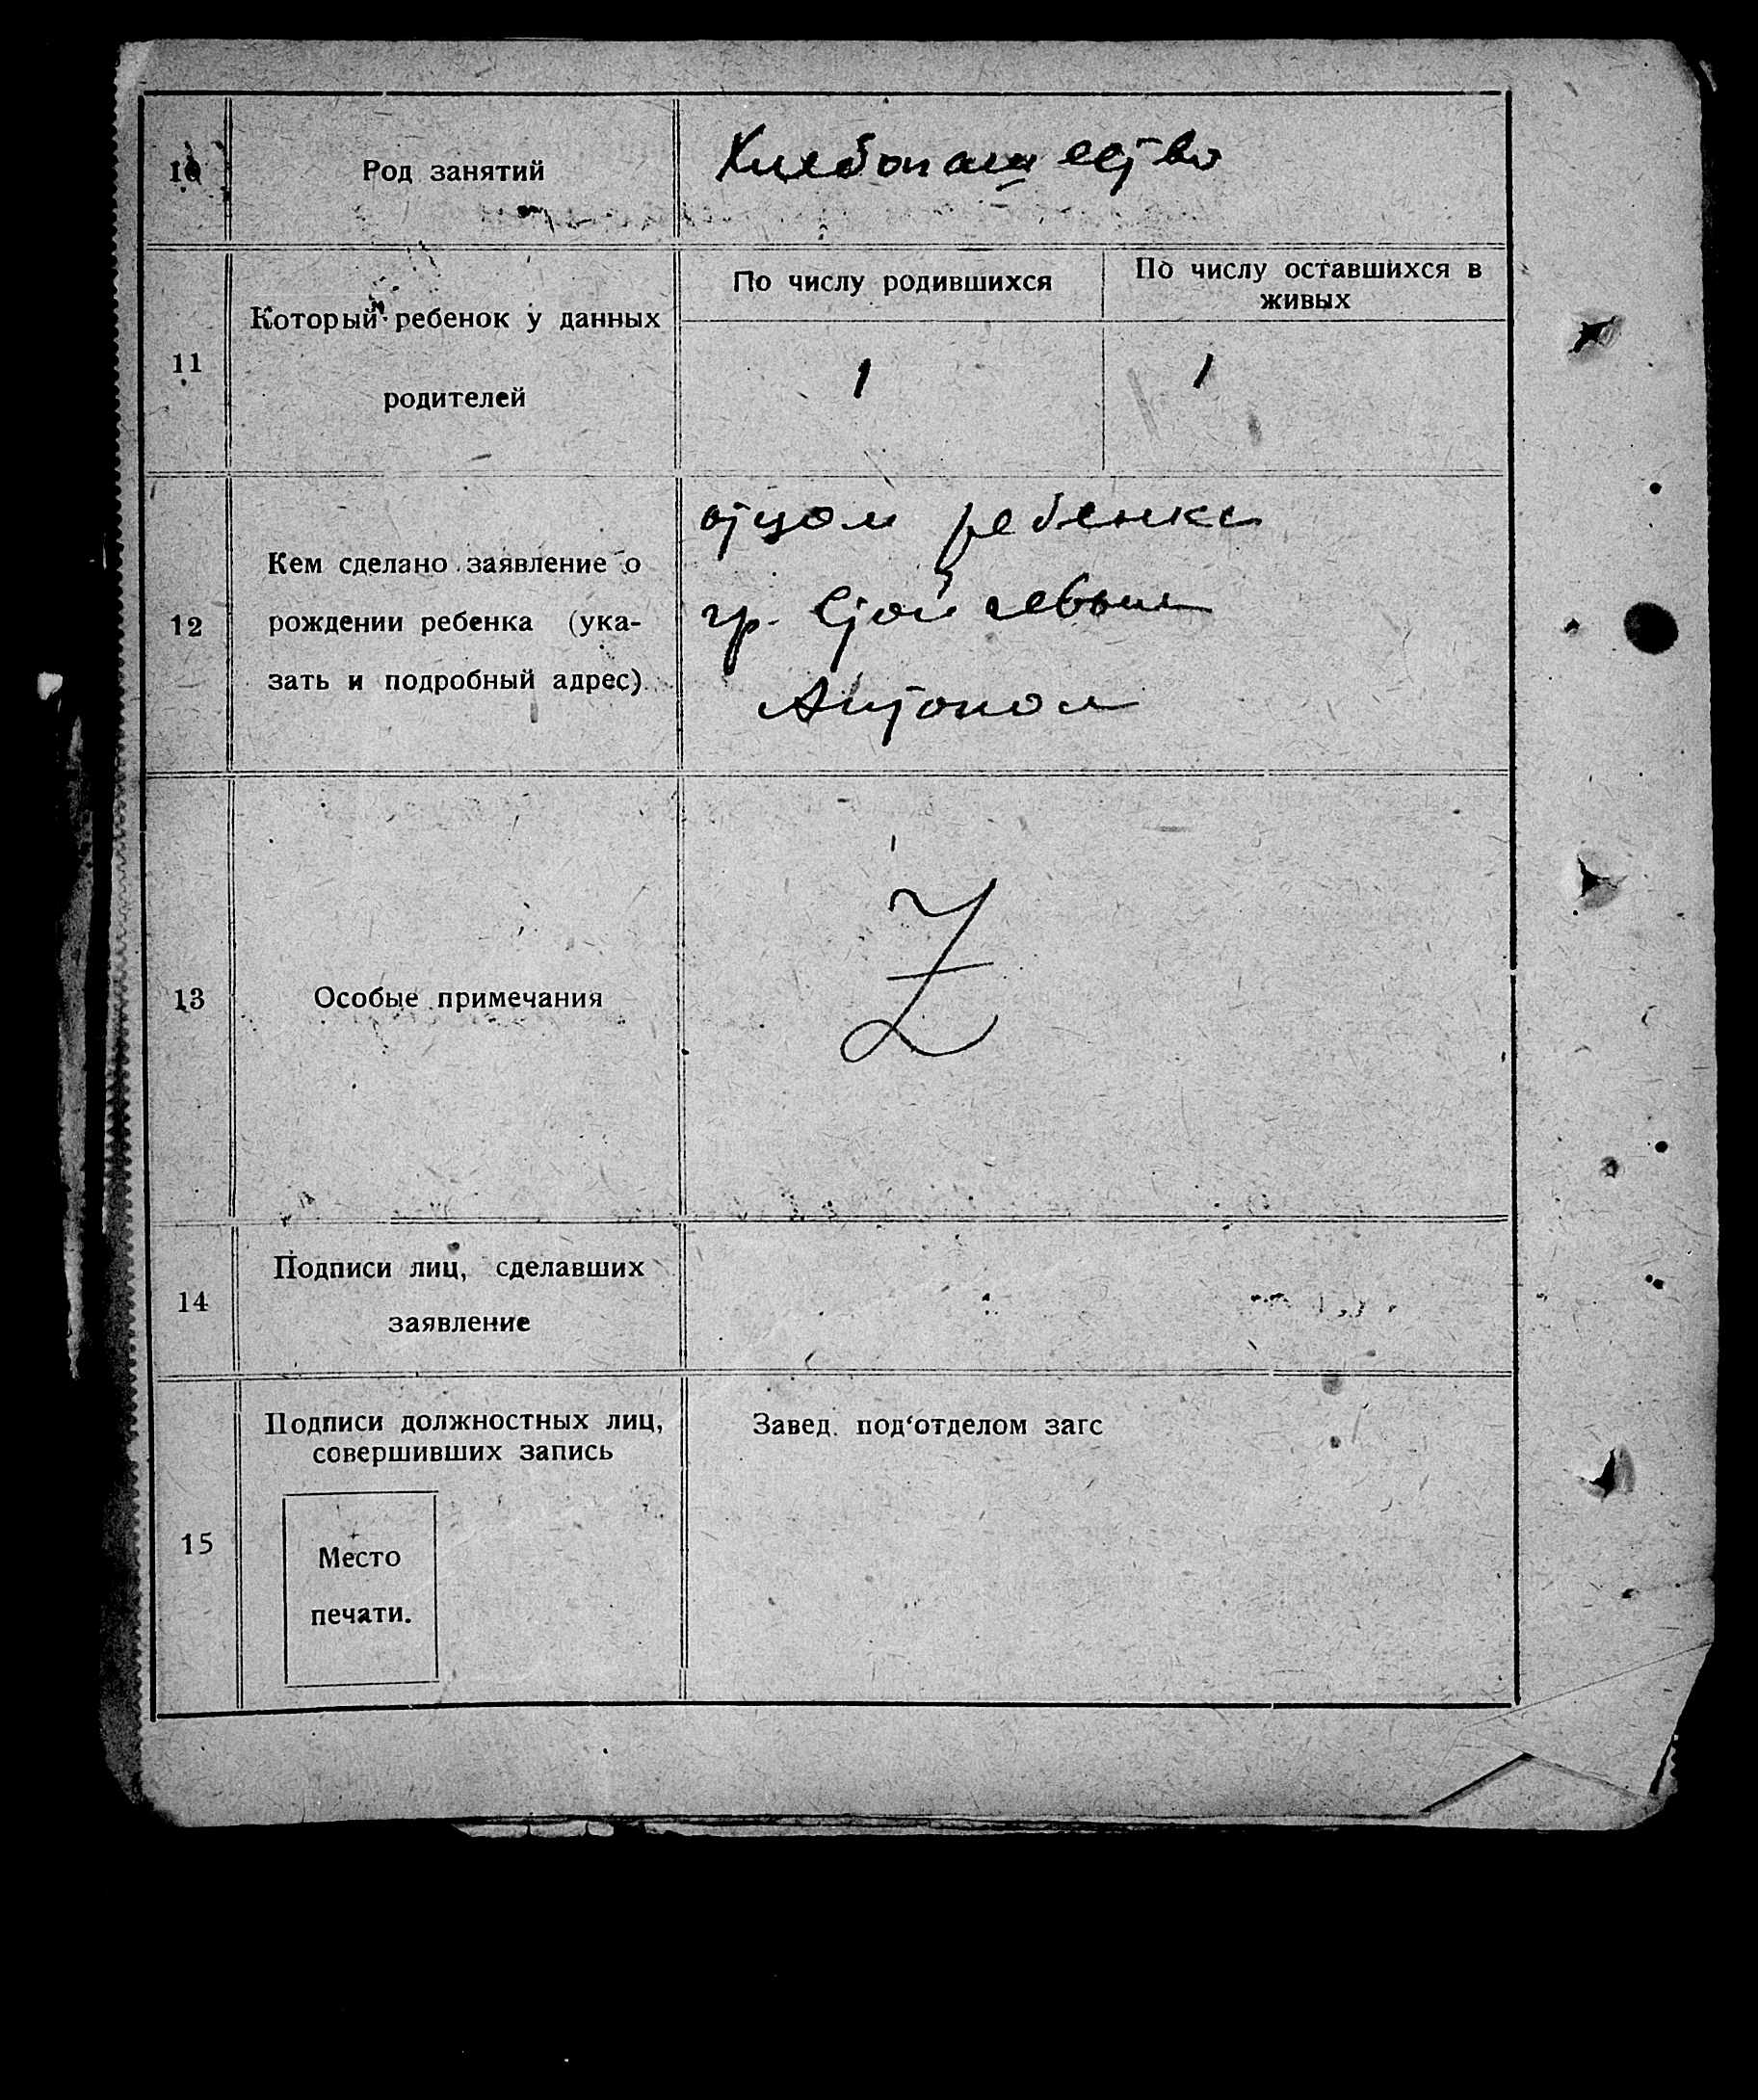 10
Род занятий
Хлебопашество
11
Который ребенок у данных
родителей
По числу родившихся
По числу оставшихся в
живых
1
1
12
Кем сделано заявление о
рождении ребенка (ука-
зать и подробный адрес)
отцом ребенка
гр.
Антоном
13
Особые примечания
Z
14
Подписи лиц, сделавших
заявление
15
Подписи должностных лиц,
совершивших запись
Место
печати.
Завед. под'отделом загс